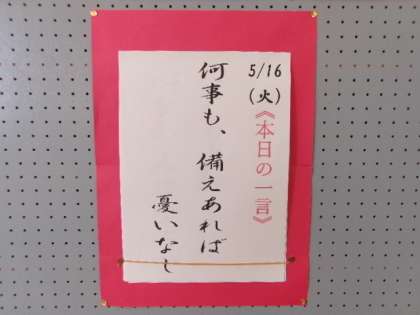 5/16
(火)
《本日の一言》
何事も、備えあれば
憂いなし